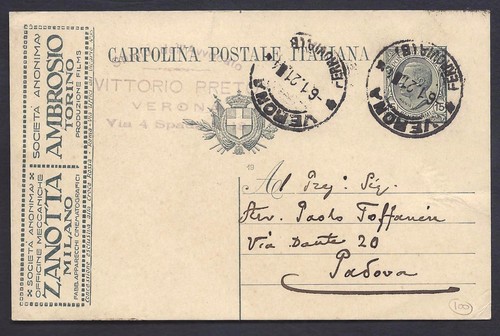 CARTOLINA POSTALE ITALIANA
VITTORIO PRET
VERON
Via 4 Spade
VERONA
FERROVIA (B)
6.1.21
VERONA
FERROVIA (B)
6.1.21
15
SOCIETÀ ANONIMA
AMBROSIO
TORINO
PRODUZIONE FILMS
SOCIETÀ ANONIMA
OFFICINE MECCANICHE
ZANOTTA
MILANO
FABBL. APPARECCHI CINEMATOGRAFICI
Ad Preg: Sig.
Avv. Paolo Toffanin
Via Dante 20
Padova
100